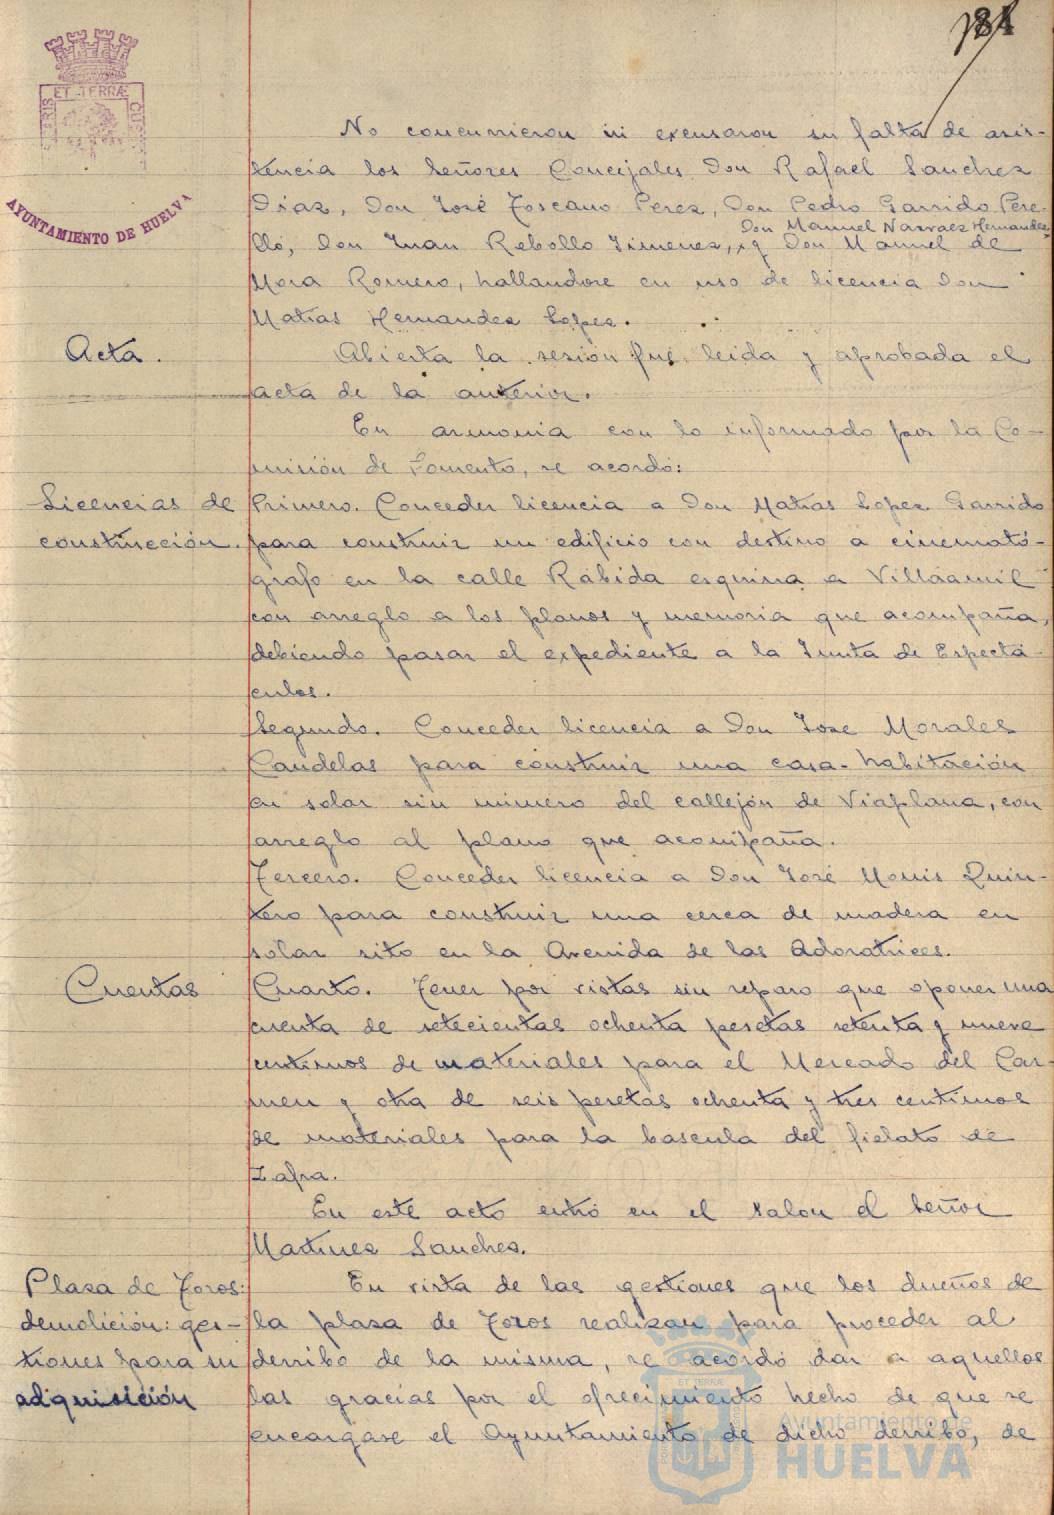 84
ET TERRÆ
AYUNTAMIENTO DE HUELVA
No concurrieron ni excusaron su falta de asis-
tencia los Señores Concejales Don Rafael Sanchez
Diaz, Don José Toscano Perez, Don Pedro Garrido Pere-
Don Manuel Narvaez Hernandez,
lló, Don Juan Rebollo Jimenez, y Don Manuel de
Mora Romero, hallandose en uso de licencia Don
Matias Hernandez Lopez.
Acta.
Abierta la sesión fué leida y aprobada el
acta de la anterior.
En armonia con lo informado por la Co-
misión de Fomento, se acordó:
Licencias de
construcción.
Primero. Conceder licencia a Don Matias Lopez Garrido
para construir un edificio con destino a cinemató-
grafo en la calle Rábida esquina a Villaamil
con arreglo a los planos y memoria que acompaña,
debiendo pasar el expediente a la Junta de Espectá-
culos.
Segundo. Conceder licencia a Don Jose Morales
Candelas para construir una casa-habitación
en solar sin número del callejón de Viaplana, con
arreglo al plano que acompaña.
Tercero. Conceder licencia a Don José Monis Quin-
tero para construir una cerca de madera en
solar sito en la Avenida de las Adoratrices.
Cuentas
Cuarto. Tener por vistas sin reparo que oponer una
cuenta de setecientas ochenta pesetas setenta y nueve
centimos de materiales para el Mercado del Car-
men y otra de seis pesetas ochenta y tres centimos
de materiales para la bascula del fielato de
Zafra.
En este acto entró en el salon el Señor
Martinez Sanchez.
Plaza de Toros:
demolición: ges-
tiones para su
adquisición
En vista de las gestiones que los dueños de
la plaza de Toros realizan para proceder al
derribo de la misma, se acordó dar a aquellos
las gracias por el ofrecimiento hecho de que se
encargase el Ayuntamiento de dicho derribo, de
Ayuntamiento de
HUELVA